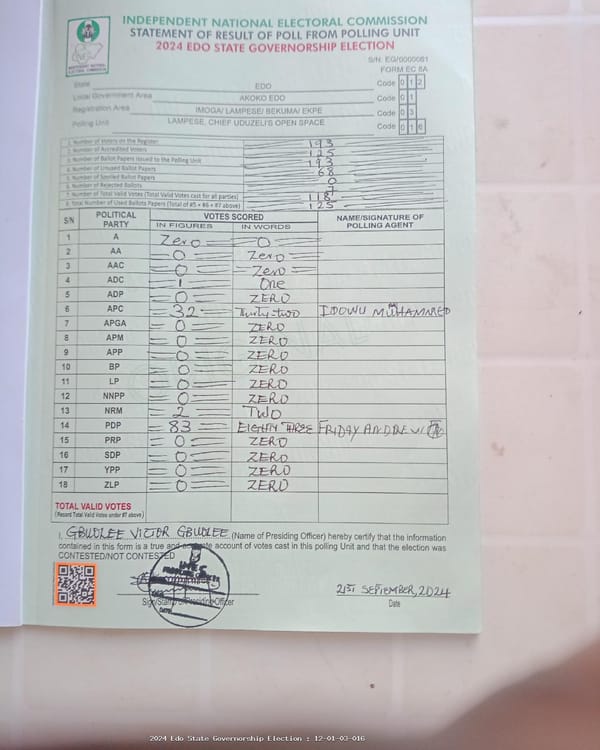 INDEPENDENT NATIONAL ELECTORAL COMMISSION
STATEMENT OF RESULT OF POLL FROM POLLING UNIT
2024 EDO STATE GOVERNORSHIP ELECTION
S/N: EG/0000081
FORM EC 8A
State EDO Code 0 1 2
Local Government Area AKOKO EDO Code 0 1
Registration Area IMOGA/ LAMPESE/ BEKUMA/ EKPE Code 0 3
Polling Unit LAMPESE, CHIEF UDUZELI'S OPEN SPACE Code 0 1 6
1. Number of Voters on the Register 193
2. Number of Accredited Voters 125
3. Number of Ballot Papers Issued to the Polling Unit 193
4. Number of Unused Ballot Papers 68
5. Number of Spoiled Ballot Papers 0
6. Number of Rejected Ballots 7
7. Number of Total Valid Votes (Total Valid Votes cast for all parties) 118
8. Total Number of Used Ballots Papers (Total of #5 + #6 + #7 above) 125
S/N POLITICAL PARTY VOTES SCORED NAME/SIGNATURE OF POLLING AGENT
IN FIGURES IN WORDS
1 A Zero 0
2 AA 0 Zero
3 AAC 0 Zero
4 ADC 1 One
5 ADP 0 ZERO
6 APC 32 Thirty-two IDOWU MUHAMMED
7 APGA 0 ZERO
8 APM 0 ZERO
9 APP 0 ZERO
10 BP 0 ZERO
11 LP 0 ZERO
12 NNPP 0 ZERO
13 NRM 2 TWO
14 PDP 83 EIGHTY THREE FRIDAY ANDREW
15 PRP 0 ZERO
16 SDP 0 ZERO
17 YPP 0 ZERO
18 ZLP 0 ZERO
TOTAL VALID VOTES
(Record Total Valid Votes under #7 above)
I, GBUDLEE VICTOR GBUDLEE (Name of Presiding Officer) hereby certify that the information
contained in this form is a true and account of votes cast in this polling Unit and that the election was
CONTESTED/NOT CONTESTED
21ST SEPTEMBER, 2024
Sign/Stamp of Presiding Officer Date
2024 Edo State Governorship Election : 12-01-03-016